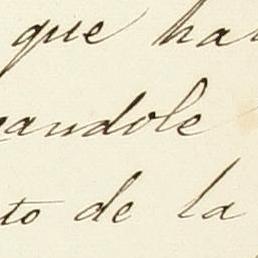 que ha
andole
to de la